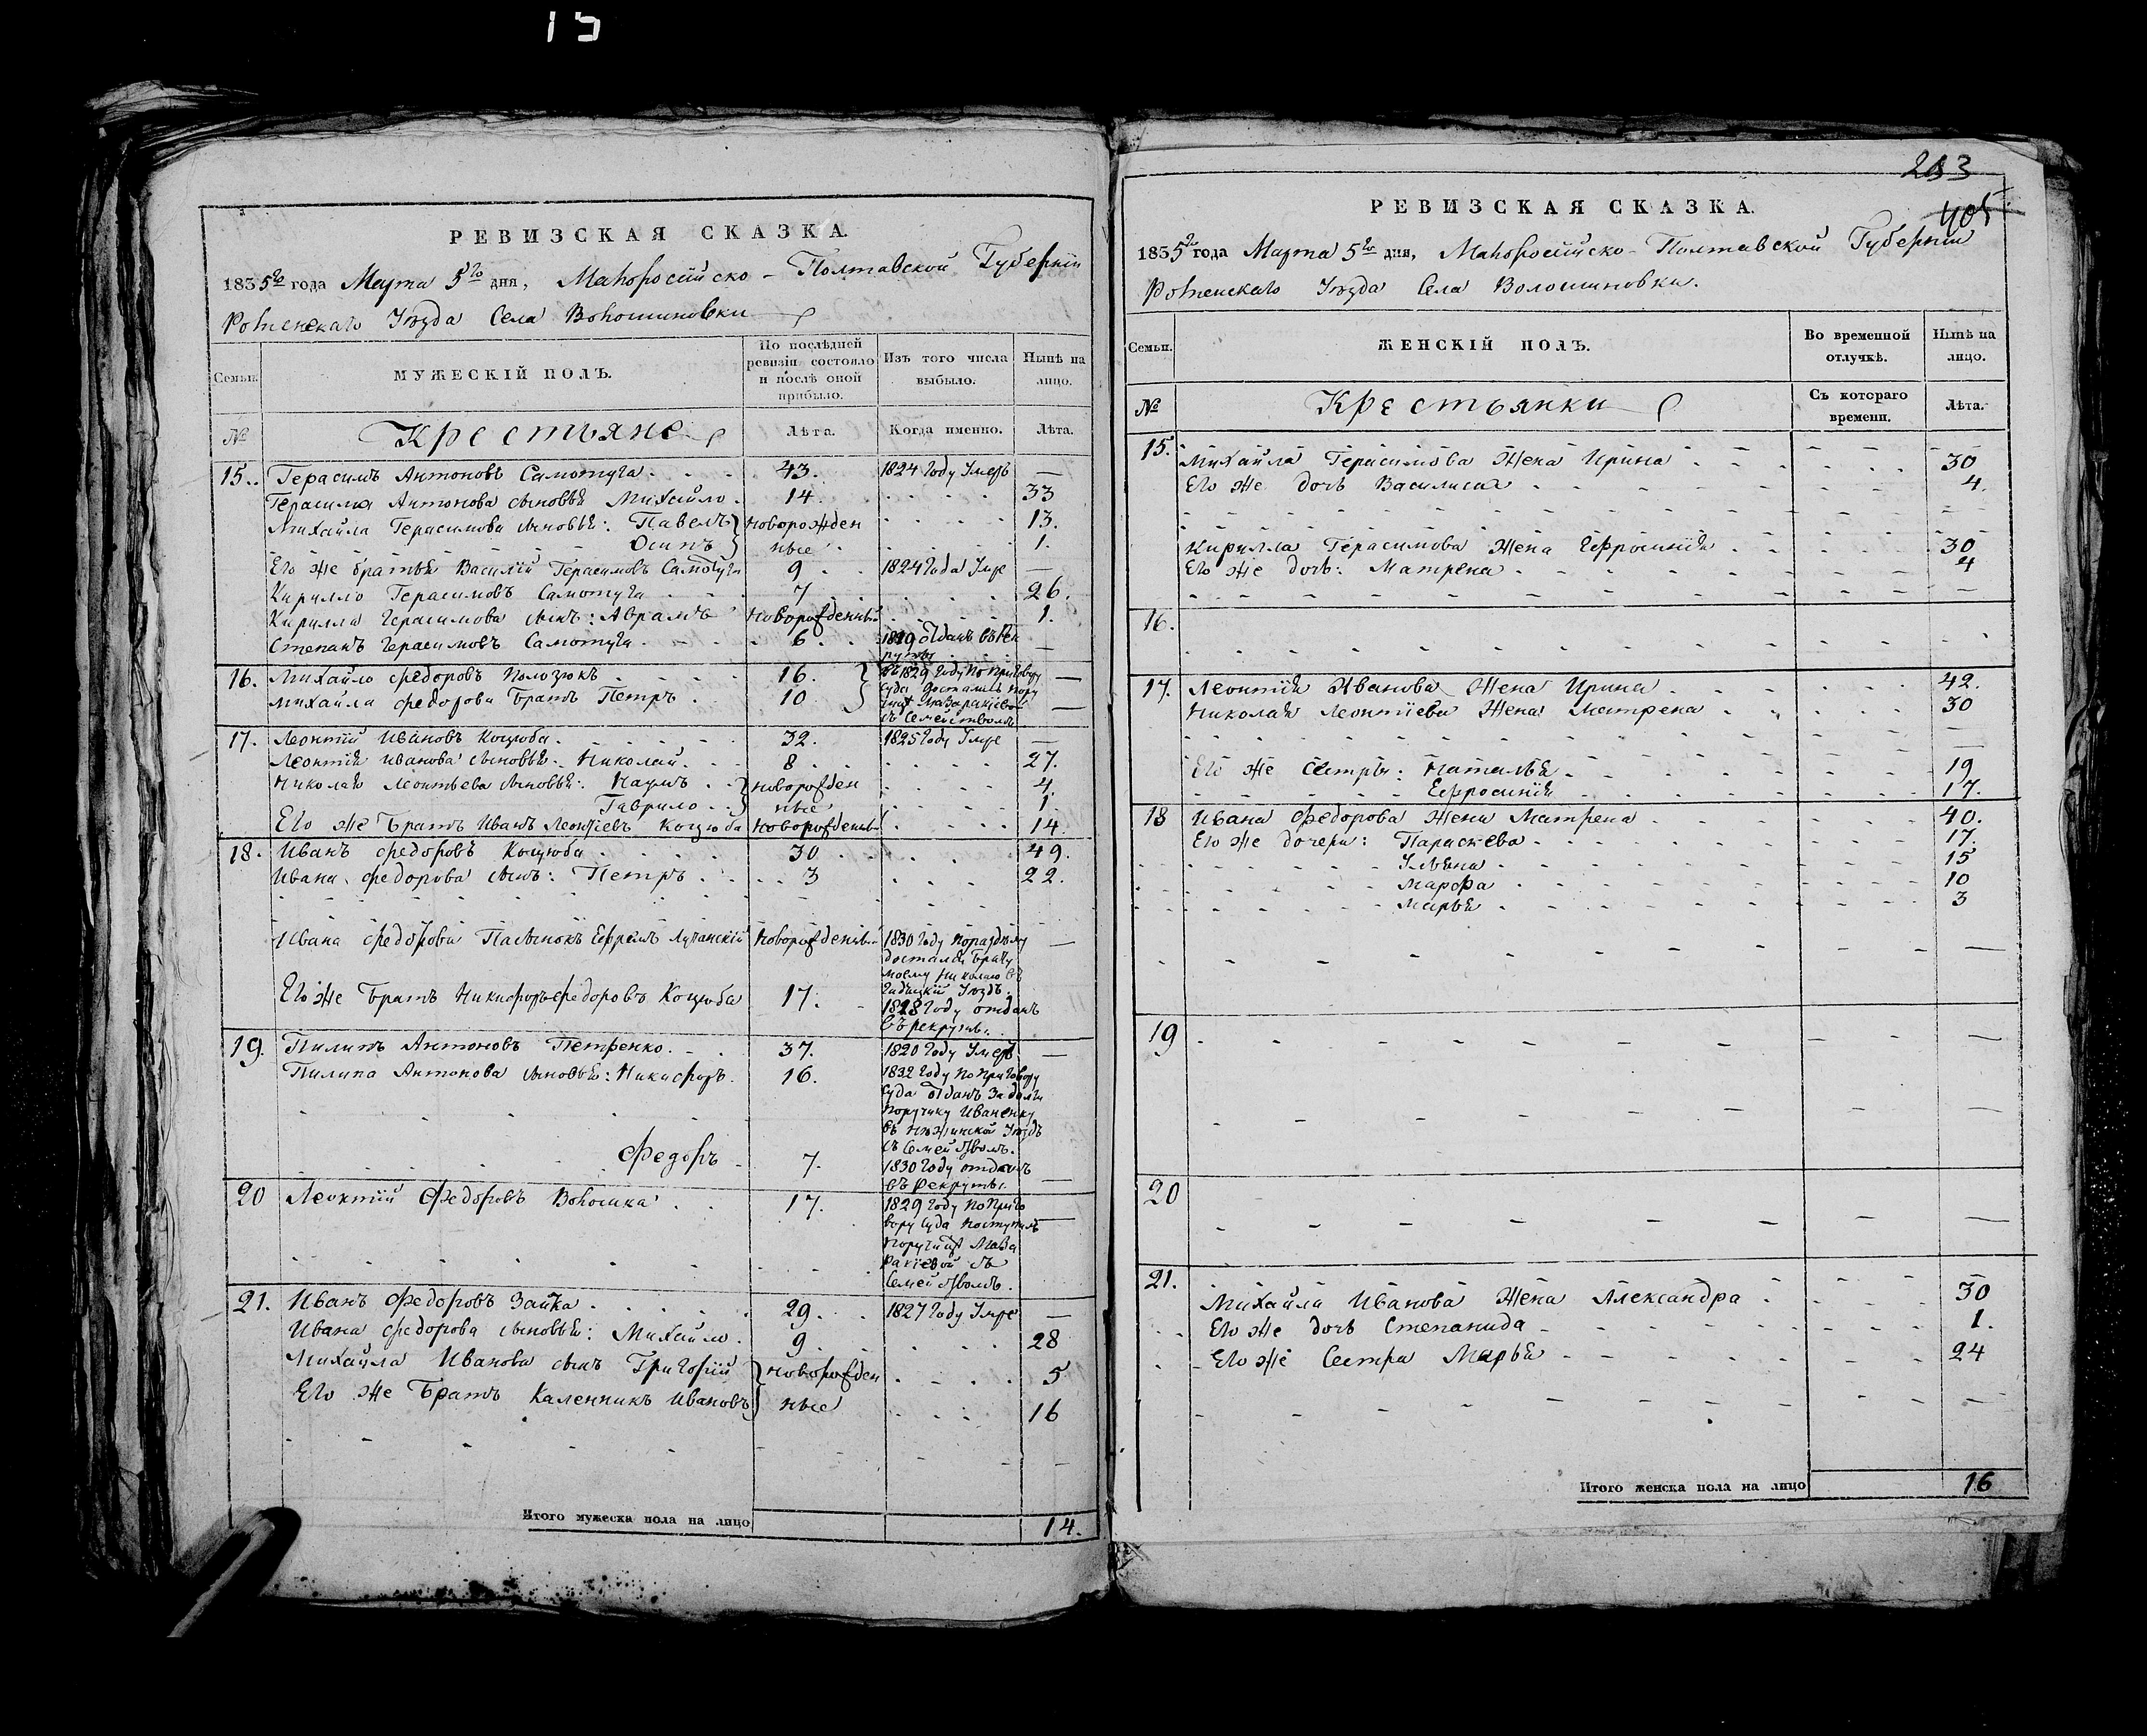 15
РЕВИЗСКАЯ СКАЗКА.
1835го года Марта 5го дня, Малоросійско-Полтавской Губерніи
Роменскаго Уѣзда Села Волошиновки
Семьи.
МУЖЕСКІЙ ПОЛЪ.
По послѣдней ревизіи состояло и послѣ оной прибыло.
Изъ того числа выбыло.
Нынѣ на лицо.
№
Крестьяне
Лѣта.
Когда именно.
Лѣта.
15. Герасимъ Антоновъ Самотуга 43. 1824 Году Умеръ —
Герасима Антонова сыновья Михайло 14 33
Михайла Герасимова сыновья: Павелъ новорожден 13.
Осипъ ные 1.
Его же братья Василій Герасимовъ Самотуга 9 1824 Года Умре —
Кирилло Герасимовъ Самотуга 7 26.
Кирилла Герасимова сынъ: Абрамъ Новорожденный 1.
Степанъ Герасимовъ Самотуга 6 1819 отданъ въ Рек —
руты
16. Михайло Федоровъ Полозюкъ 16. въ 1829 Году по приговору —
Михайла Федорова Братъ Петръ 10 суда достались пору —
съ Семействомъ
17. Леонтій Ивановъ Коцюба 32. 1825 Году Умре —
Леонтія Иванова сыновья Николай 8 27.
Николая Леонтьева сыновья: Наумъ новорожден 4.
Гаврило ные 1.
Его же Братъ Иванъ Леонтіевъ Коцюба Новорожденный 14
18. Иванъ Федоровъ Коцюба 30 49.
Ивана Федорова сынъ: Петръ 3 22.
Ивана Федорова Пасынокъ Ефремъ Лучанскій Новорожденный 1830 Году по раздѣлу —
достался Брату
моему Николаю въ
Гадяцкій Уѣздъ.
Его же Братъ Никифоръ Федоровъ Коцюба 17. 1828 Году отданъ
въ рекруты.
19. Пилипъ Антоновъ Петренко 37. 1820 Году Умеръ —
Пилипа Антонова сыновья: Никифоръ 16. 1832 Году по приговору
суда отданъ за долги
поручику Иваненку
въ Нѣжинской Уѣздъ
съ Семействомъ.
Федоръ 7. 1830 Году отданъ
въ рекруты. —
20 Леонтій Федоровъ Волошка 17. 1829 Году по приго
вору суда поступилъ —
поручицѣ Маза
ракіевой съ
Семействомъ.
21. Иванъ Федоровъ Заика 29. 1827 Году Умре —
Ивана Федорова сыновья: Михайло 9 28
Михайла Иванова сынъ Григорій новорожден 5
Его же Братъ Каленникъ Ивановъ ные 16
Итого мужеска пола на лицо 14.
405
РЕВИЗСКАЯ СКАЗКА.
1835го года Марта 5го дня, Малоросійско-Полтавской Губерніи
Роменскаго Уѣзда Села Волошиновки.
Семьи.
ЖЕНСКІЙ ПОЛЪ.
Во временной отлучкѣ.
Нынѣ на лицо.
№
Крестьянки
Съ котораго времени.
Лѣта.
15. Михайла Герасимова Жена Ирина 30
Его же дочь Василиса 4.
Кирилла Герасимова Жена Ефросинія 30
Его же дочь: Матрена 4
16.
17. Леонтія Иванова Жена Ирина 42.
Николая Леонтіева Жена Матрена 30
Его же Сестры: Наталья 19
Ефросинія 17.
18 Ивана Федорова Жена Матрена 40.
Его же дочери: Параскева 17.
Ульяна 15
Марфа 10
Марья 3
19
20
21. Михайла Иванова Жена Александра 30
Его же дочь Степанида 1.
Его же Сестра Марья 24
Итого женска пола на лицо 16